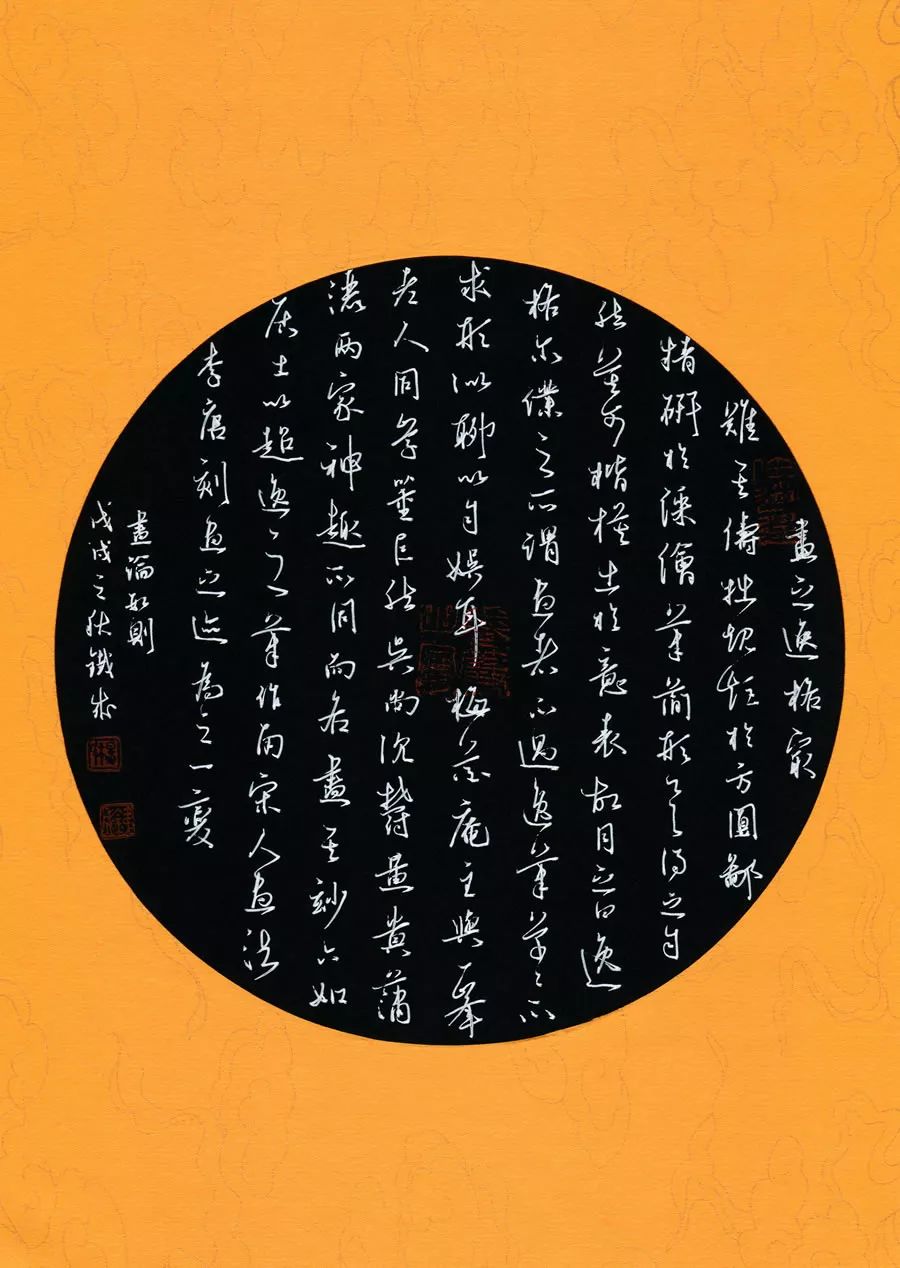 畫之逸格最
難其儔拙規矩於方圓鄙
精研於綵繪筆簡形具得之自
然莫可楷模出於意表故目之曰逸
格尔僕之所謂畫者不過逸筆草々不
求形似聊以自娛耳梅花庵主與一峯
老人同學董巨然吳尚沉鬱黃貴瀟
灑两家神趣不同而各盡其妙六如
居士以超逸之筆作南宋人畫法
李唐刻畫之迹為之一變
畫論数則
戊戌之秋鐵林